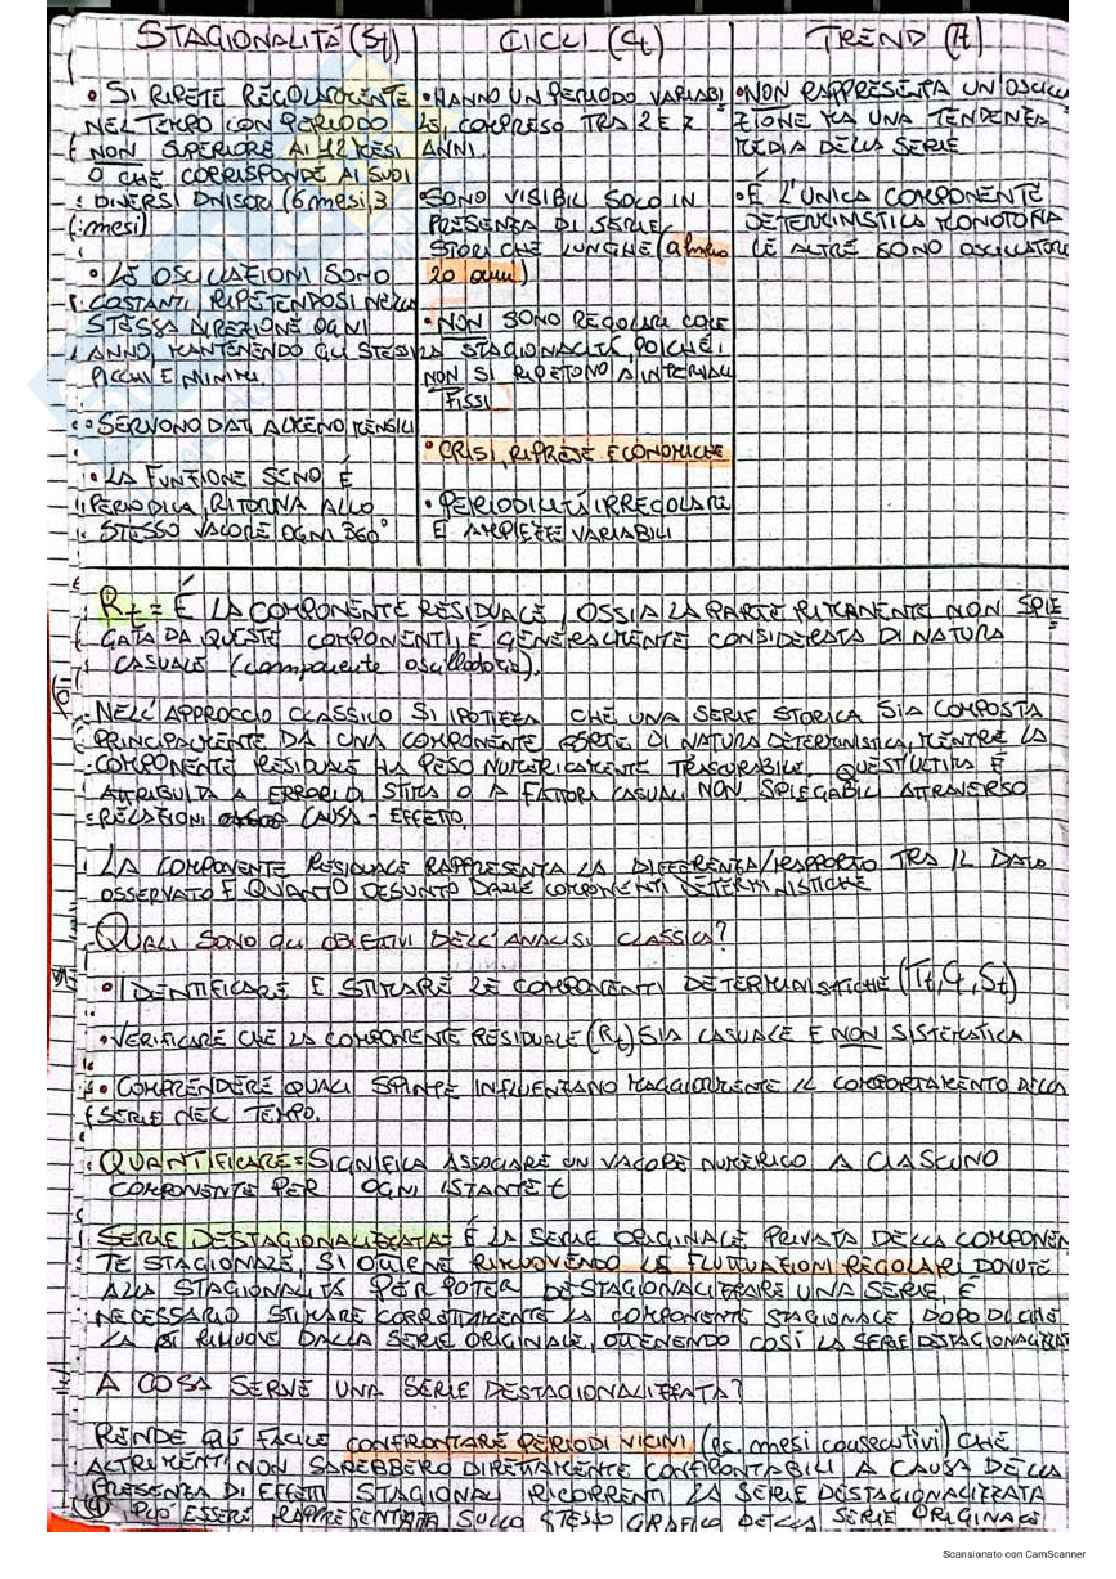 STAGIONALITÀ (St)
• SI RIPETE REGOLARMENTE
NEL TEMPO CON PERIODO
NON SUPERIORE AI 12 MESI
O CHE CORRISPONDE AI SUOI
DIVERSI DIVISORI (6 mesi, 3
mesi)
• LE OSCILLAZIONI SONO
COSTANTI, RIPETENDOSI NELLA
STESSA DIREZIONE OGNI
ANNO, MANTENENDO GLI STESSI
PICCHI E MINIMI.
• SERVONO DATI ALMENO MENSILI
• LA FUNZIONE SENO È
PERIODICA, RITORNA ALLO
STESSO VALORE OGNI 360°
CICLI (Ct)
• HANNO UN PERIODO VARIABI
LE, COMPRESO TRA 2 E 7
ANNI.
• SONO VISIBILI SOLO IN
PRESENZA DI SERIE
STORICHE LUNGHE (almeno
20 anni)
• NON SONO REGOLARI COME
LA STAGIONALITÀ, POICHÉ
NON SI RIPETONO A INTERVALLI
FISSI
• CRISI, RIPRESE ECONOMICHE
• PERIODICITÀ IRREGOLARI
E AMPIEZZE VARIABILI
TREND (Tt)
• NON RAPPRESENTA UN'OSCILLA
ZIONE MA UNA TENDENZA
MEDIA DELLA SERIE
• È L'UNICA COMPONENTE
DETERMINISTICA MONOTONA
LE ALTRE SONO OSCILLATORIE
Rt = È LA COMPONENTE RESIDUALE, OSSIA LA PARTE RIMANENTE NON SPIE
GATA DA QUESTE COMPONENTI, È GENERALMENTE CONSIDERATA DI NATURA
CASUALE (componente oscillatoria).
NELL'APPROCCIO CLASSICO SI IPOTIZZA CHE UNA SERIE STORICA SIA COMPOSTA
PRINCIPALMENTE DA UNA COMPONENTE FORTE DI NATURA DETERMINISTICA, MENTRE LA
COMPONENTE RESIDUALE HA PESO NUMERICAMENTE TRASCURABILE. QUEST'ULTIMA È
ATTRIBUITA A ERRORI DI STIMA O A FATTORI CASUALI NON SPIEGABILI ATTRAVERSO
RELAZIONI CAUSA - EFFETTO.
LA COMPONENTE RESIDUALE RAPPRESENTA LA DIFFERENZA/RAPPORTO TRA IL DATO
OSSERVATO E QUANTO DESUNTO DALLE COMPONENTI DETERMINISTICHE
QUALI SONO GLI OBIETTIVI DELL'ANALISI CLASSICA?
• IDENTIFICARE E STIMARE LE COMPONENTI DETERMINISTICHE (Tt, Ct, St)
• VERIFICARE CHE LA COMPONENTE RESIDUALE (Rt) SIA CASUALE E NON SISTEMATICA
• COMPRENDERE QUALI SPINTE INFLUENZANO MAGGIORMENTE IL COMPORTAMENTO DELLA
SERIE NEL TEMPO.
QUANTIFICARE = SIGNIFICA ASSOCIARE UN VALORE NUMERICO A CIASCUNO
COMPONENTE PER OGNI ISTANTE t
SERIE DESTAGIONALIZZATA = È LA SERIE ORIGINALE PRIVATA DELLA COMPONEN
TE STAGIONALE, SI OTTIENE RIMUOVENDO LE FLUTTUAZIONI REGOLARI DOVUTE
ALLA STAGIONALITÀ PER POTER DESTAGIONALIZZARE UNA SERIE, È
NECESSARIO STIMARE CORRETTAMENTE LA COMPONENTE STAGIONALE DOPO DI CHE
LA SI RIMUOVE DALLA SERIE ORIGINALE, OTTENENDO COSÌ LA SERIE DESTAGIONALIZZAT
A COSA SERVE UNA SERIE DESTAGIONALIZZATA?
RENDE PIÙ FACILE CONFRONTARE PERIODI VICINI (es. mesi consecutivi) CHE
ALTRIMENTI NON SAREBBERO DIRETTAMENTE CONFRONTABILI A CAUSA DELLA
PRESENZA DI EFFETTI STAGIONALI RICORRENTI LA SERIE DESTAGIONALIZZATA
PUÒ ESSERE RAPPRESENTATA SULLO STESSO GRAFICO DELLA SERIE ORIGINALE
Scansionato con CamScanner